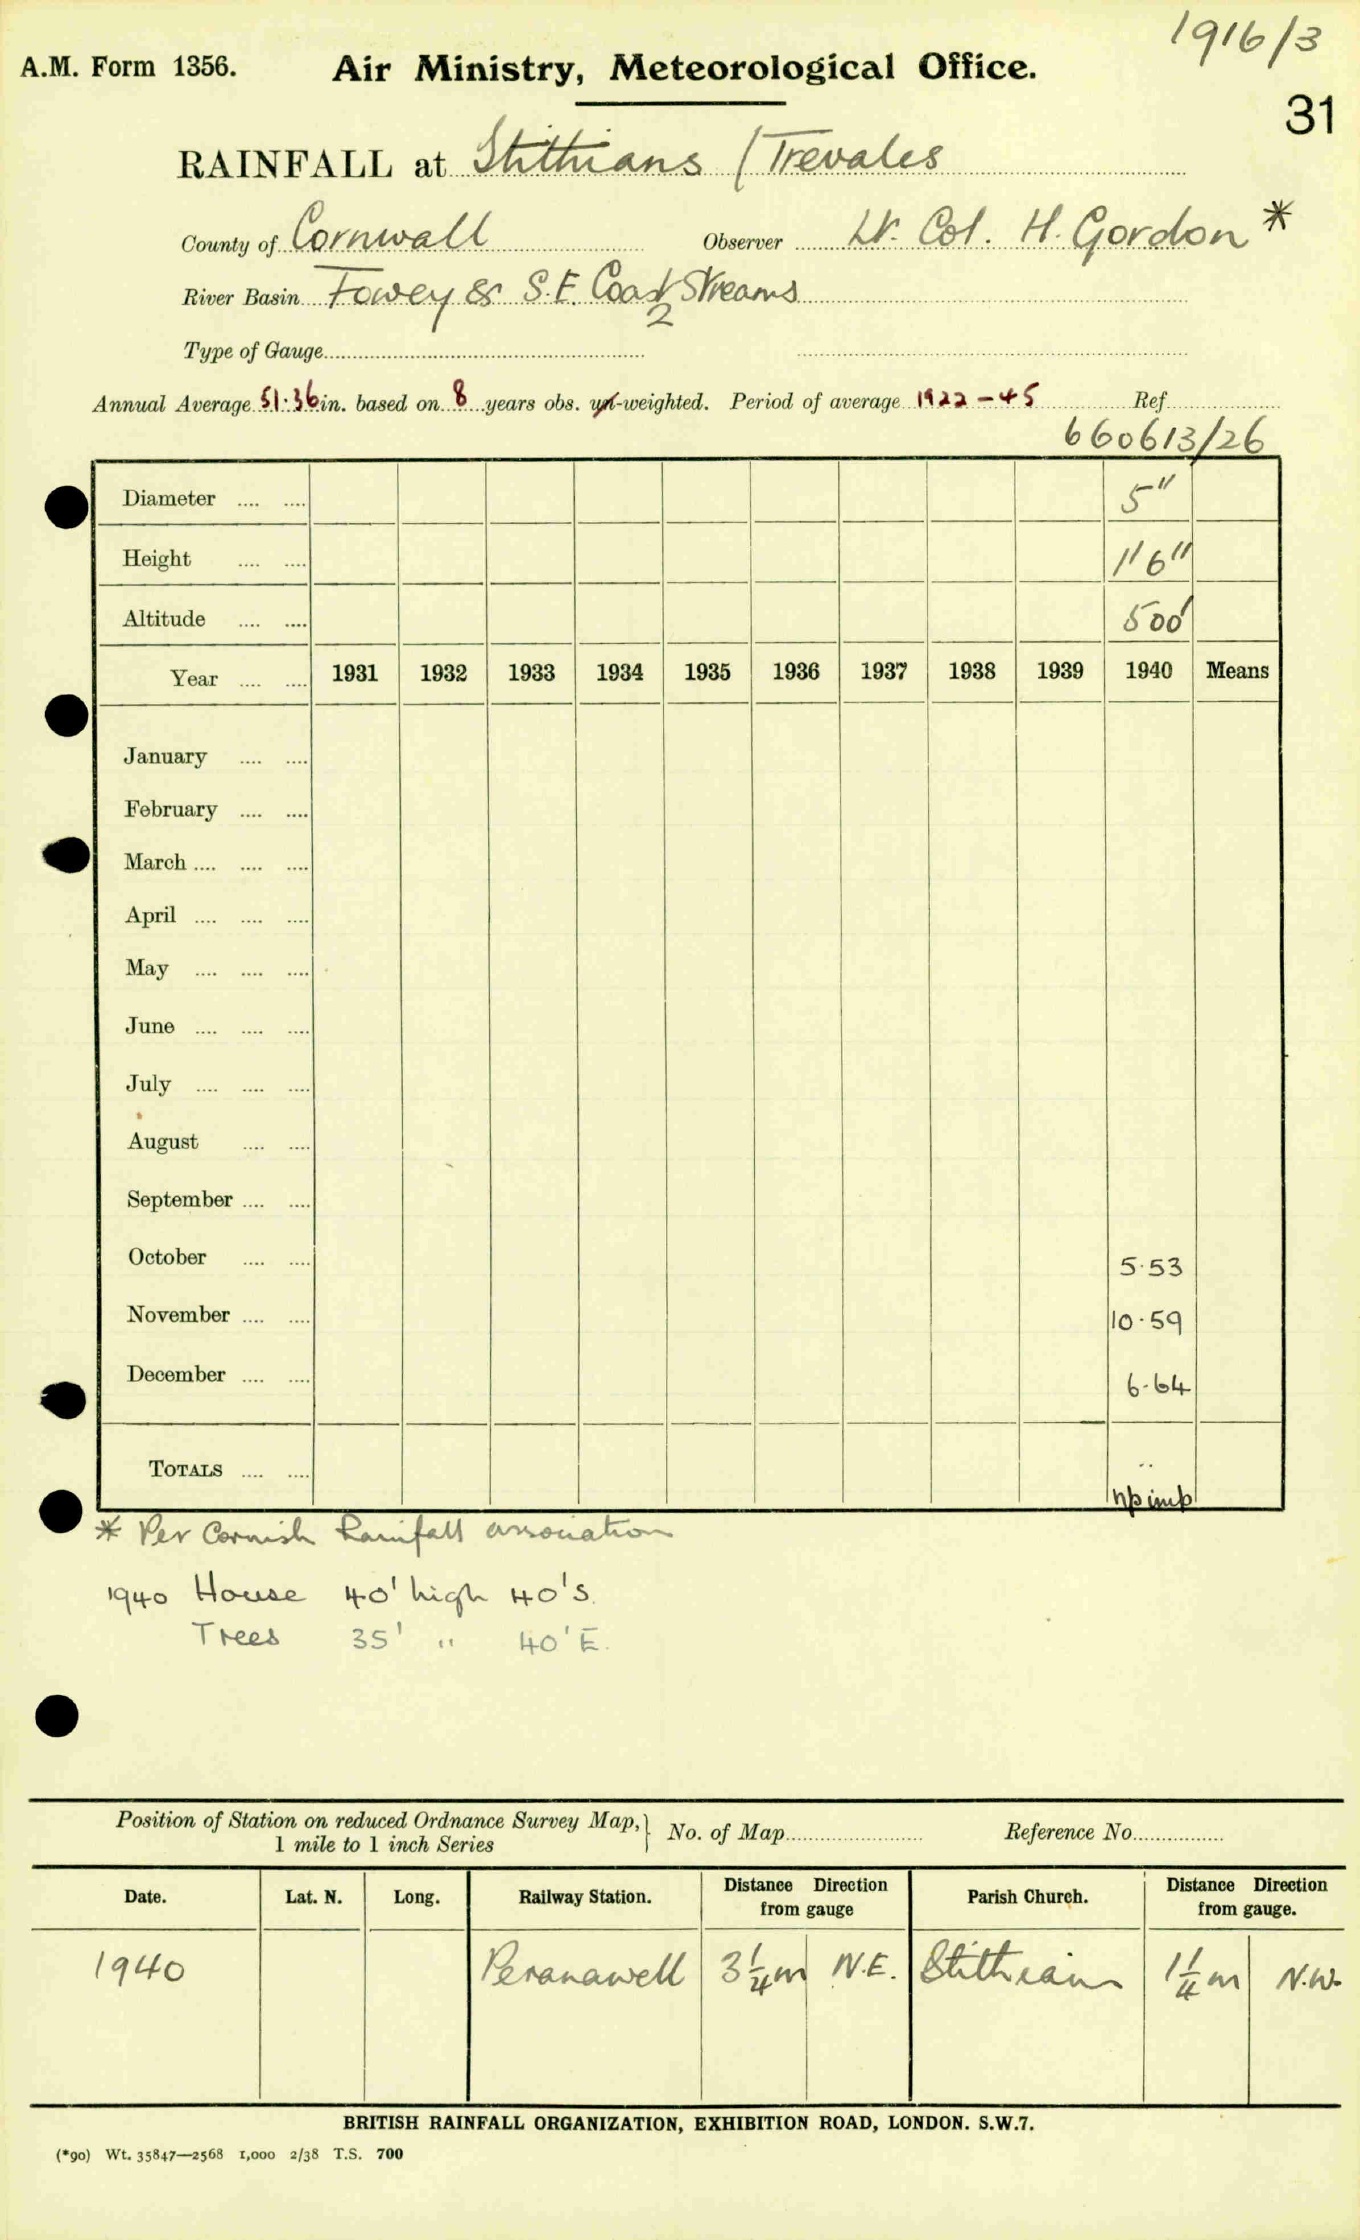 1916/3
A.M. Form 1356. Air Ministry, Meteorological Office.
31
RAINFALL at Stithians (Trevales
County of Cornwall Observer Lt. Col. H. Gordon *
River Basin Fowey & S.E. Coast Streams
2
Type of Gauge
Annual Average 51.36 in. based on 8 years obs. un-weighted. Period of average 1922-45 Ref.
660613/26
Diameter 5"
Height 1'6"
Altitude 500'
Year 1931 1932 1933 1934 1935 1936 1937 1938 1939 1940 Means
January
February
March
April
May
June
July
August
September
October 5.53
November 10.59
December 6.64
TOTALS ..
np imp
* Per Cornish Rainfall association
1940 House 40' high 40' S.
Trees 35' " 40' E.
Position of Station on reduced Ordnance Survey Map, 1 mile to 1 inch Series } No. of Map Reference No.
Date. Lat. N. Long. Railway Station. Distance Direction from gauge Parish Church. Distance Direction from gauge.
1940 Peranawell 3 1/4 m N.E. Stithians 1 1/4 m N.W.
BRITISH RAINFALL ORGANIZATION, EXHIBITION ROAD, LONDON. S.W.7.
(*90) Wt. 35847—2568 1,000 2/38 T.S. 700